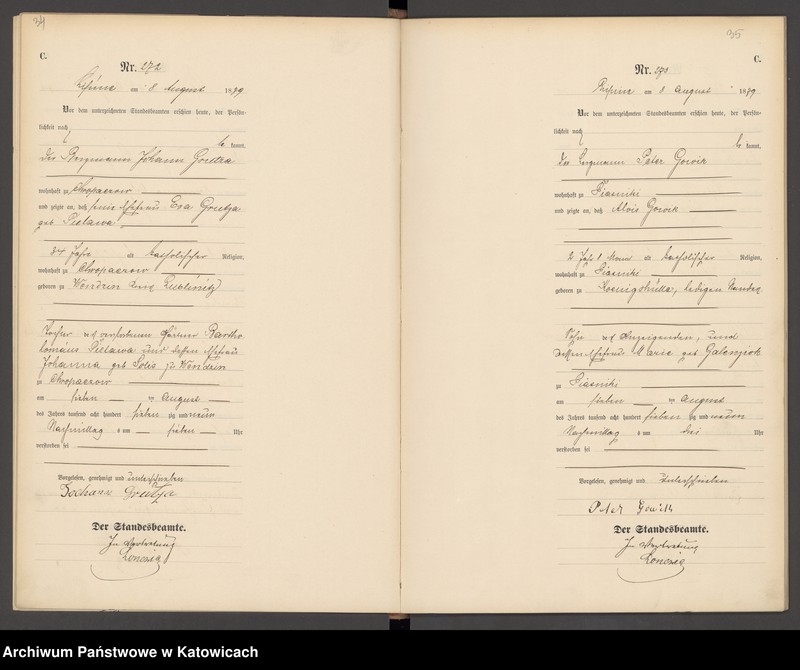 34
C.
Nr. 272
Lipine am 8 August 1879
Vor dem unterzeichneten Standesbeamten erschien heute, der Persön-
lichkeit nach
be kannt,
der Bergmann Johann Grutza
wohnhaft zu Chropaczow
und zeigte an, daß seine Ehefrau Eva Grutza
geb Pielawa
34 Jahr alt katholischer Religion,
wohnhaft zu Chropaczow
geboren zu Wondzin Kreis Lublinitz
Tochter des verstorbenen Gärtner Bartho
lomäus Pielawa und dessen Ehefrau
Johanna geb Soles zu Wondzin
zu Chropaczow
am sieben ten August
des Jahres tausend acht hundert sieben zig und neun
Nachmittag s um sieben Uhr
verstorben sei
Vorgelesen, genehmigt und unterschrieben
Johann Grutza
Der Standesbeamte.
In Vertretung
35
C.
Nr. 273
Lipine am 8 August 1879
Vor dem unterzeichneten Standesbeamten erschien heute, der Persön-
lichkeit nach
be kannt,
der Bergmann Peter Gowik
wohnhaft zu Piasniki
und zeigte an, daß Alois Gowik
2 Jahr 1 Monat alt katholischer Religion,
wohnhaft zu Piasniki
geboren zu Koenigshütte, ledigen Standes
Sohn des Anzeigenden, und
dessen Ehefrau Marie geb
zu Piasniki
am sieben ten August
des Jahres tausend acht hundert sieben zig und neun
Nachmittag s um drei Uhr
verstorben sei
Vorgelesen, genehmigt und unterschrieben
Peter Gowik
Der Standesbeamte.
In Vertretung
Archiwum Państwowe w Katowicach